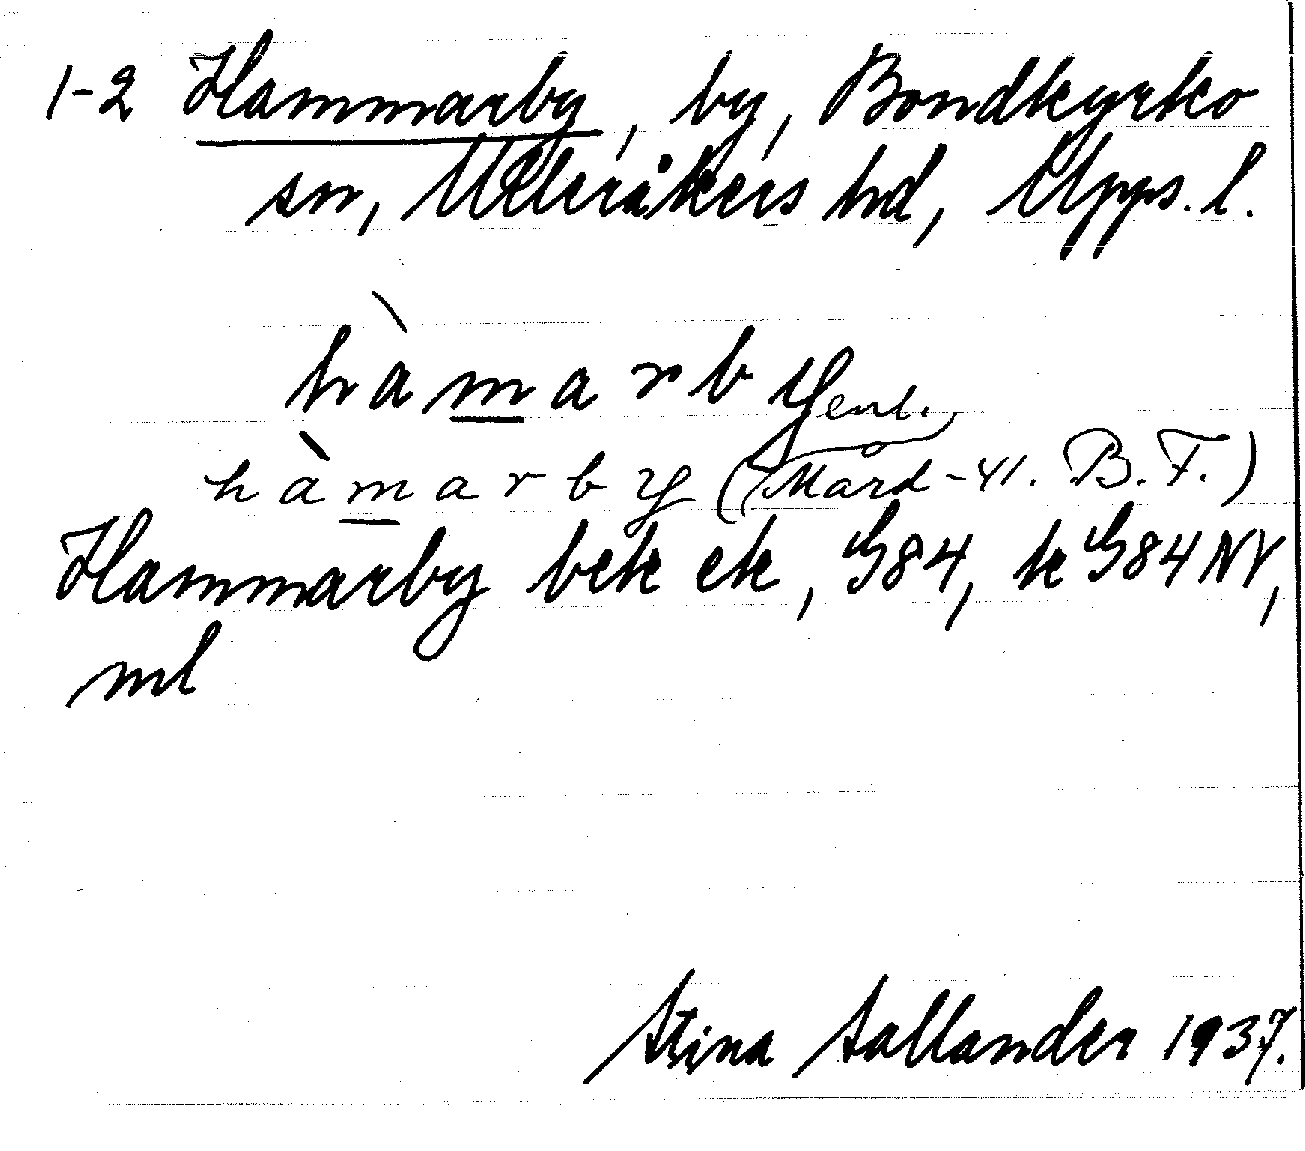 1-2 Hammarby, by, Bondkyrko
sn, Ulleråkers hd, Upps. l.
hàmarby
enl.
hàmarby (Mård -41. B.F.)
Hammarby bek ek, G84, k G84 NV,
ml
Stina Sallander 1937.